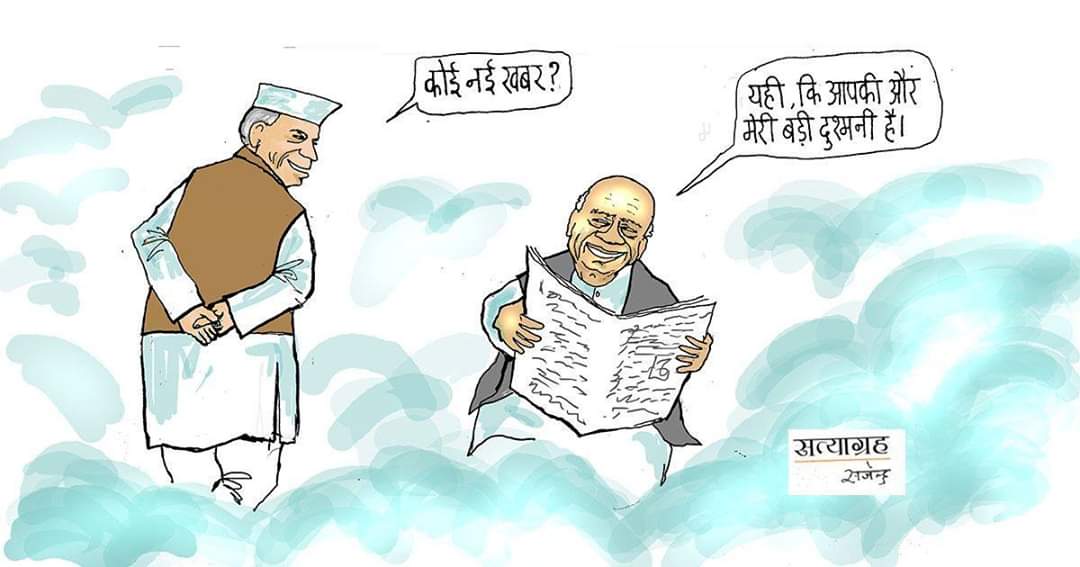 कोई नई खबर?
यही, कि आपकी और
मेरी बड़ी दुश्मनी है।
सत्याग्रह